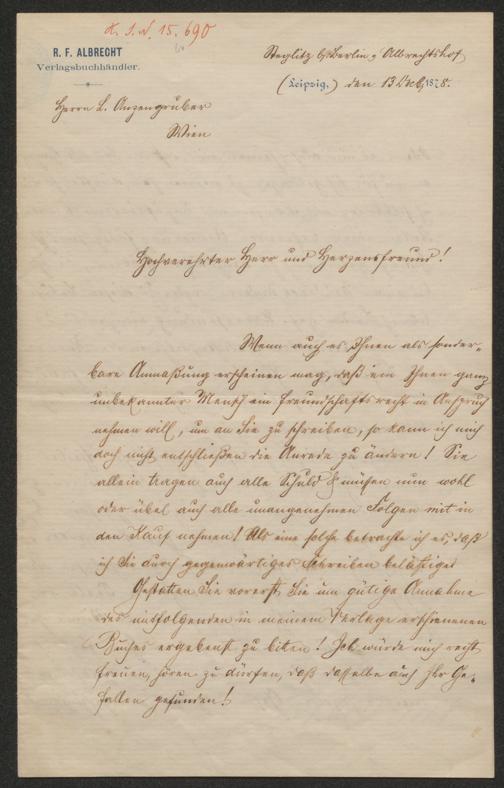 K. I. N. 15.690
R. F. ALBRECHT
Verlagsbuchhändler.
Steglitz b/Berlin, Albrechtshof
(Leipzig,) den 13 Dcbr, 1878.
Herrn L. Anzengruber
Wien
Hochverehrter Herr und Herzensfreund!
Wenn auch es Ihnen als sonder-
bare Anmaßung erscheinen mag, daß ein Ihnen ganz
unbekannter Mensch ein Freundschaftsrecht in Anspruch
nehmen will, um an Sie zu schreiben, so kann ich mich
doch nicht entschließen die Anrede zu ändern! Sie
allein tragen auch alle Schuld & müssen nun wohl
oder übel auch alle unangenehmen Folgen mit in
den Kauf nehmen! Als eine solche betrachte ich es, daß
ich Sie durch gegenwärtiges Schreiben belästige!
Gestatten Sie vorerst, Sie um gütige Annahme
des mitfolgenden in meinem Verlage erschienenen
Buches ergebenst zu bitten! Ich würde mich recht
freuen, hören zu dürfen, daß dasselbe auch Ihr Ge-
fallen gefunden!